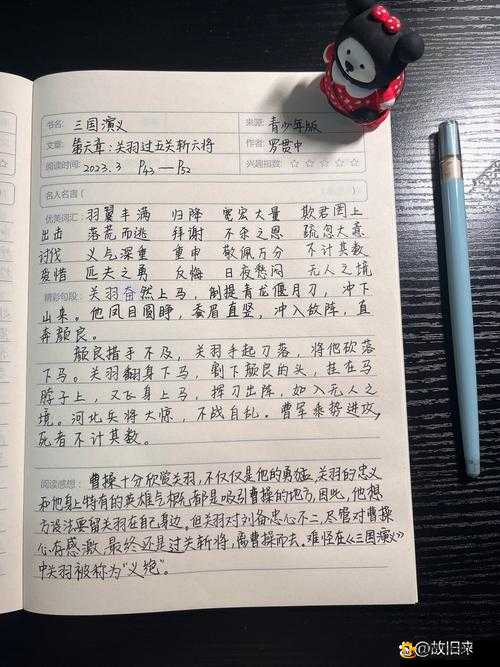 书名: 三国演义 来源: 青少年版
文章: 第六章:关羽过五关斩六将 作者: 罗贯中
阅读时间: 2023.3 P43—P52 兴趣指数: ☆☆☆☆☆
名人名言 (
优美词汇: 羽翼丰满 归降 宽宏大量 欺君罔上
出击 落荒而逃 拜谢 不杀之恩 疏忽大意
讨伐 义气深重 重申 敬佩万分 不计其数
爱惜 匹夫之勇 反悔 日夜愁闷 无人之境
精彩句段: 关羽奋然上马,倒提青龙偃月刀,冲下
山来。他凤目圆睁,蚕眉直竖,冲入敌阵,直
奔颜良。
颜良措手不及,关羽手起刀落,将他砍落
下马。关羽翻身下马,割下颜良的头,挂在马
脖子上,又飞身上马,挥刀出阵,如入无人之
境。河北兵将大惊,不战自乱。曹军乘势进攻,
死者不计其数。
阅读感想: 曹操十分欣赏关羽,不仅仅是他的勇猛,关羽的忠义
和他身上特有的英雄气概都是吸引曹操的地方,因此,他想
方设法要留关羽在自己身边。但关羽对刘备忠心不二,尽管对曹操
心存感激,最终还是过关斩将,离曹操而去。难怪在《三国演义》
中关羽被称为"义绝"。
@故旧来